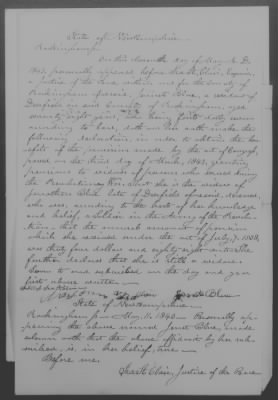 State of New Hampshire
Rockingham ss.
On this eleventh day of May A. D.
1843, personally appeared before Esquire,
a Justice of the Peace within and for the County of
Rockingham aforesaid, Janet Blue, a resident of
Deerfield in said County of Rockingham, aged
seventy eight years, who being first duly sworn
according to law, doth on her oath make the
following declaration, in order to obtain the ben-
efits of the provision made by the act of Congress,
passed on the third day of March, 1843, granting
pensions to widows of persons who served during
the Revolutionary War, that she is the widow of
Jonathan Blue late of Deerfield aforesaid, deceased,
who was, according to the best of her knowledge
and belief, a soldier in the Army of the Revolu-
tion - that the annual amount of pension
which she received under the act of July, 7, 1838,
was thirty four dollars and eighty eight cents. She
further declares that she is still a widow.
Sworn to and subscribed on the day and year
first above written.
Janet Blue
State of New Hampshire
Rockingham ss. May 11, 1843. Personally ap-
pearing the above named Janet Blue, made
solemn oath that the above affidavit by her sub-
scribed is, in her belief, true
Before me,
Justice of the Peace